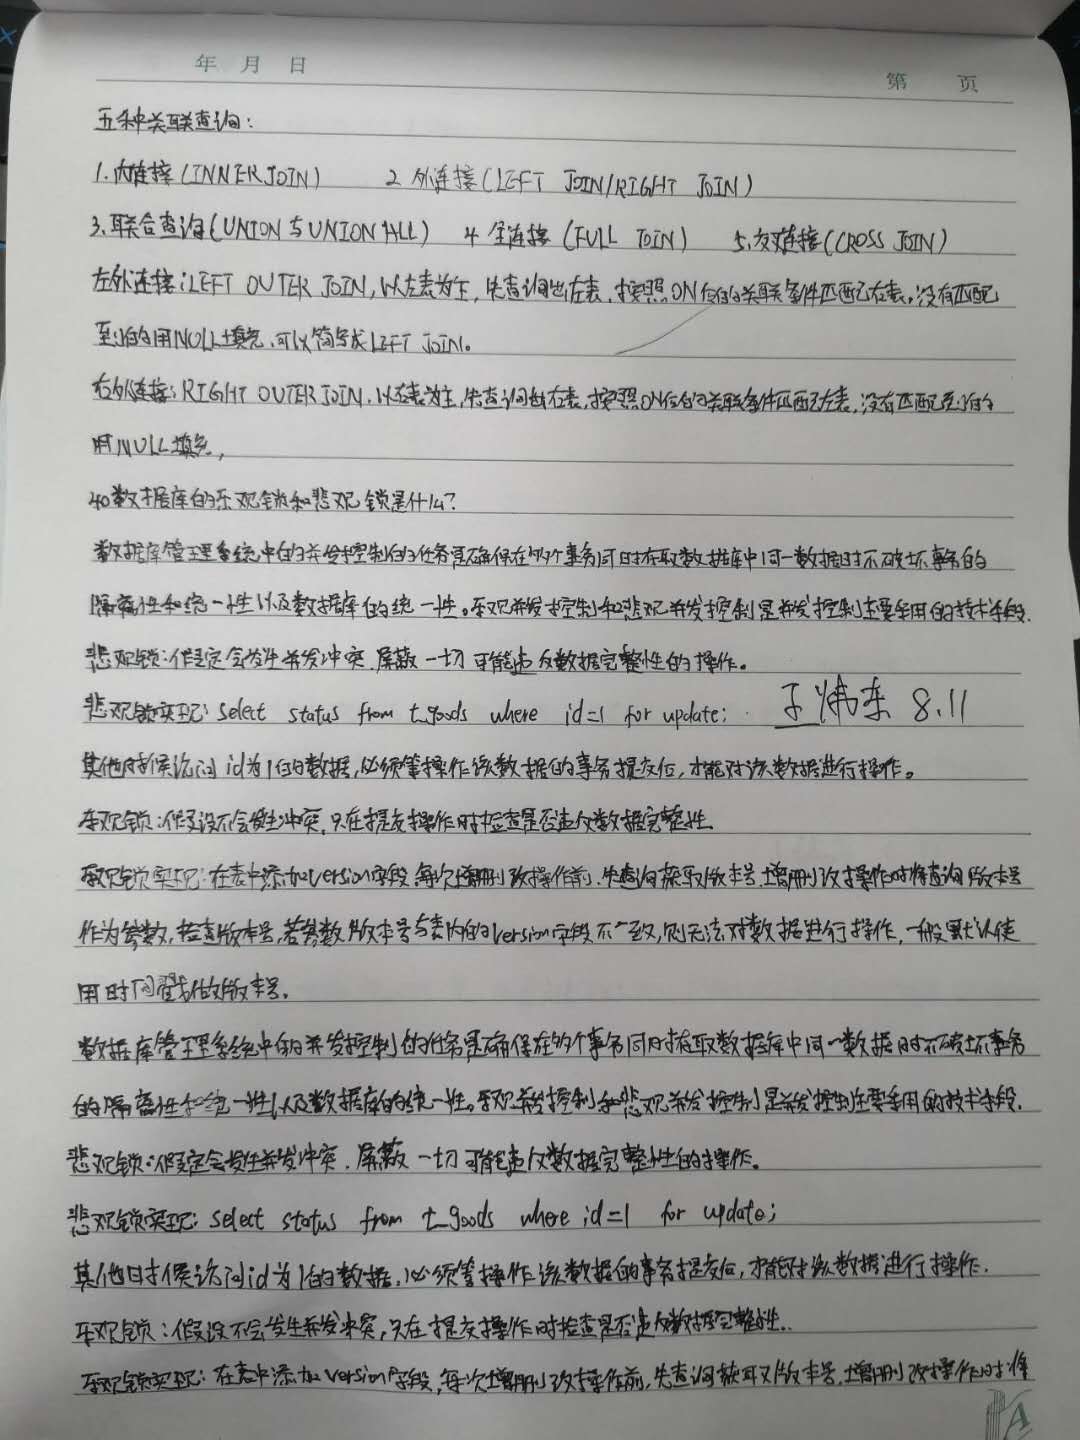 年 月 日
第 页
五种关联查询:
1.内连接(INNER JOIN) 2 外连接(LEFT JOIN/RIGHT JOIN)
3.联合查询(UNION与UNION ALL) 4 全连接(FULL JOIN) 5.交叉连接(CROSS JOIN)
左外连接:LEFT OUTER JOIN,以左表为主,先查询出左表,按照ON后的关联条件匹配右表,没有匹配
到的用NULL填充,可以简写成LEFT JOIN。
右外连接:RIGHT OUTER JOIN,以右表为主,先查询出右表,按照ON后的关联条件匹配左表,没有匹配到的
用NULL填充,
40数据库的乐观锁和悲观锁是什么?
数据库管理系统中的并发控制的任务是确保在多个事务同时存取数据库中同一数据时不破坏事务的
隔离性和统一性以及数据库的统一性。乐观并发控制和悲观并发控制是并发控制主要采用的技术手段.
悲观锁:假定会发生并发冲突,屏蔽一切可能违反数据完整性的操作。
悲观锁实现: select status from t_goods where id=1 for update; 王 东 8.11
其他时候访问id为1的数据,必须等操作该数据的事务提交后,才能对该数据进行操作。
乐观锁:假设不会发生冲突,只在提交操作时检查是否违反数据完整性.
乐观锁实现:在表中添加version字段,每次增删改操作前,先查询获取版本号,增删改操作时将查询版本号
作为参数,检查版本号,若参数版本号与表内的version字段不一致,则无法对数据进行操作,一般默认使
用时间戳做版本号。
数据库管理系统中的并发控制的任务是确保在多个事务同时存取数据库中同一数据时不破坏事务
的隔离性和统一性以及数据库的统一性。乐观并发控制和悲观并发控制是并发控制主要采用的技术手段.
悲观锁:假定会发生并发冲突,屏蔽一切可能违反数据完整性的操作。
悲观锁实现: select status from t_goods where id=1 for update;
其他时候访问id为1的数据,必须等操作该数据的事务提交后,才能对该数据进行操作.
乐观锁:假设不会发生并发冲突,只在提交操作时检查是否违反数据完整性.
乐观锁实现:在表中添加version字段,每次增删改操作前,先查询获取版本号,增删改操作时将